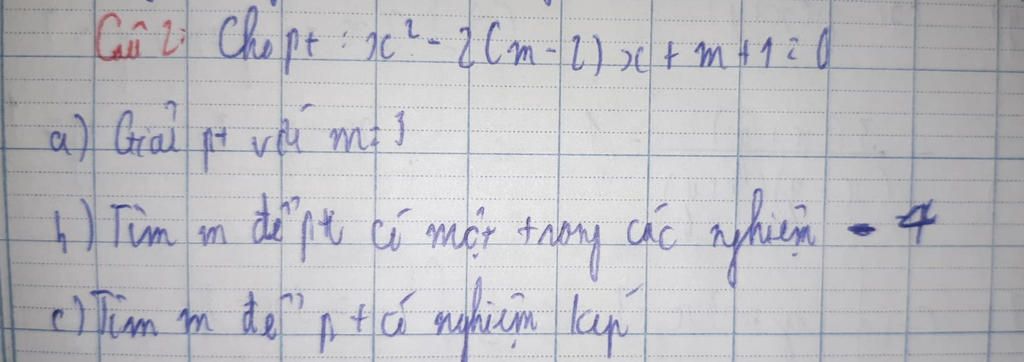 Câu 2: Cho pt : x² - 2(m-2)x + m + 1 = 0
a) Giải pt với m = 3
b) Tìm m để pt có một trong các nghiệm - 4
c) Tìm m để pt có nghiệm kép